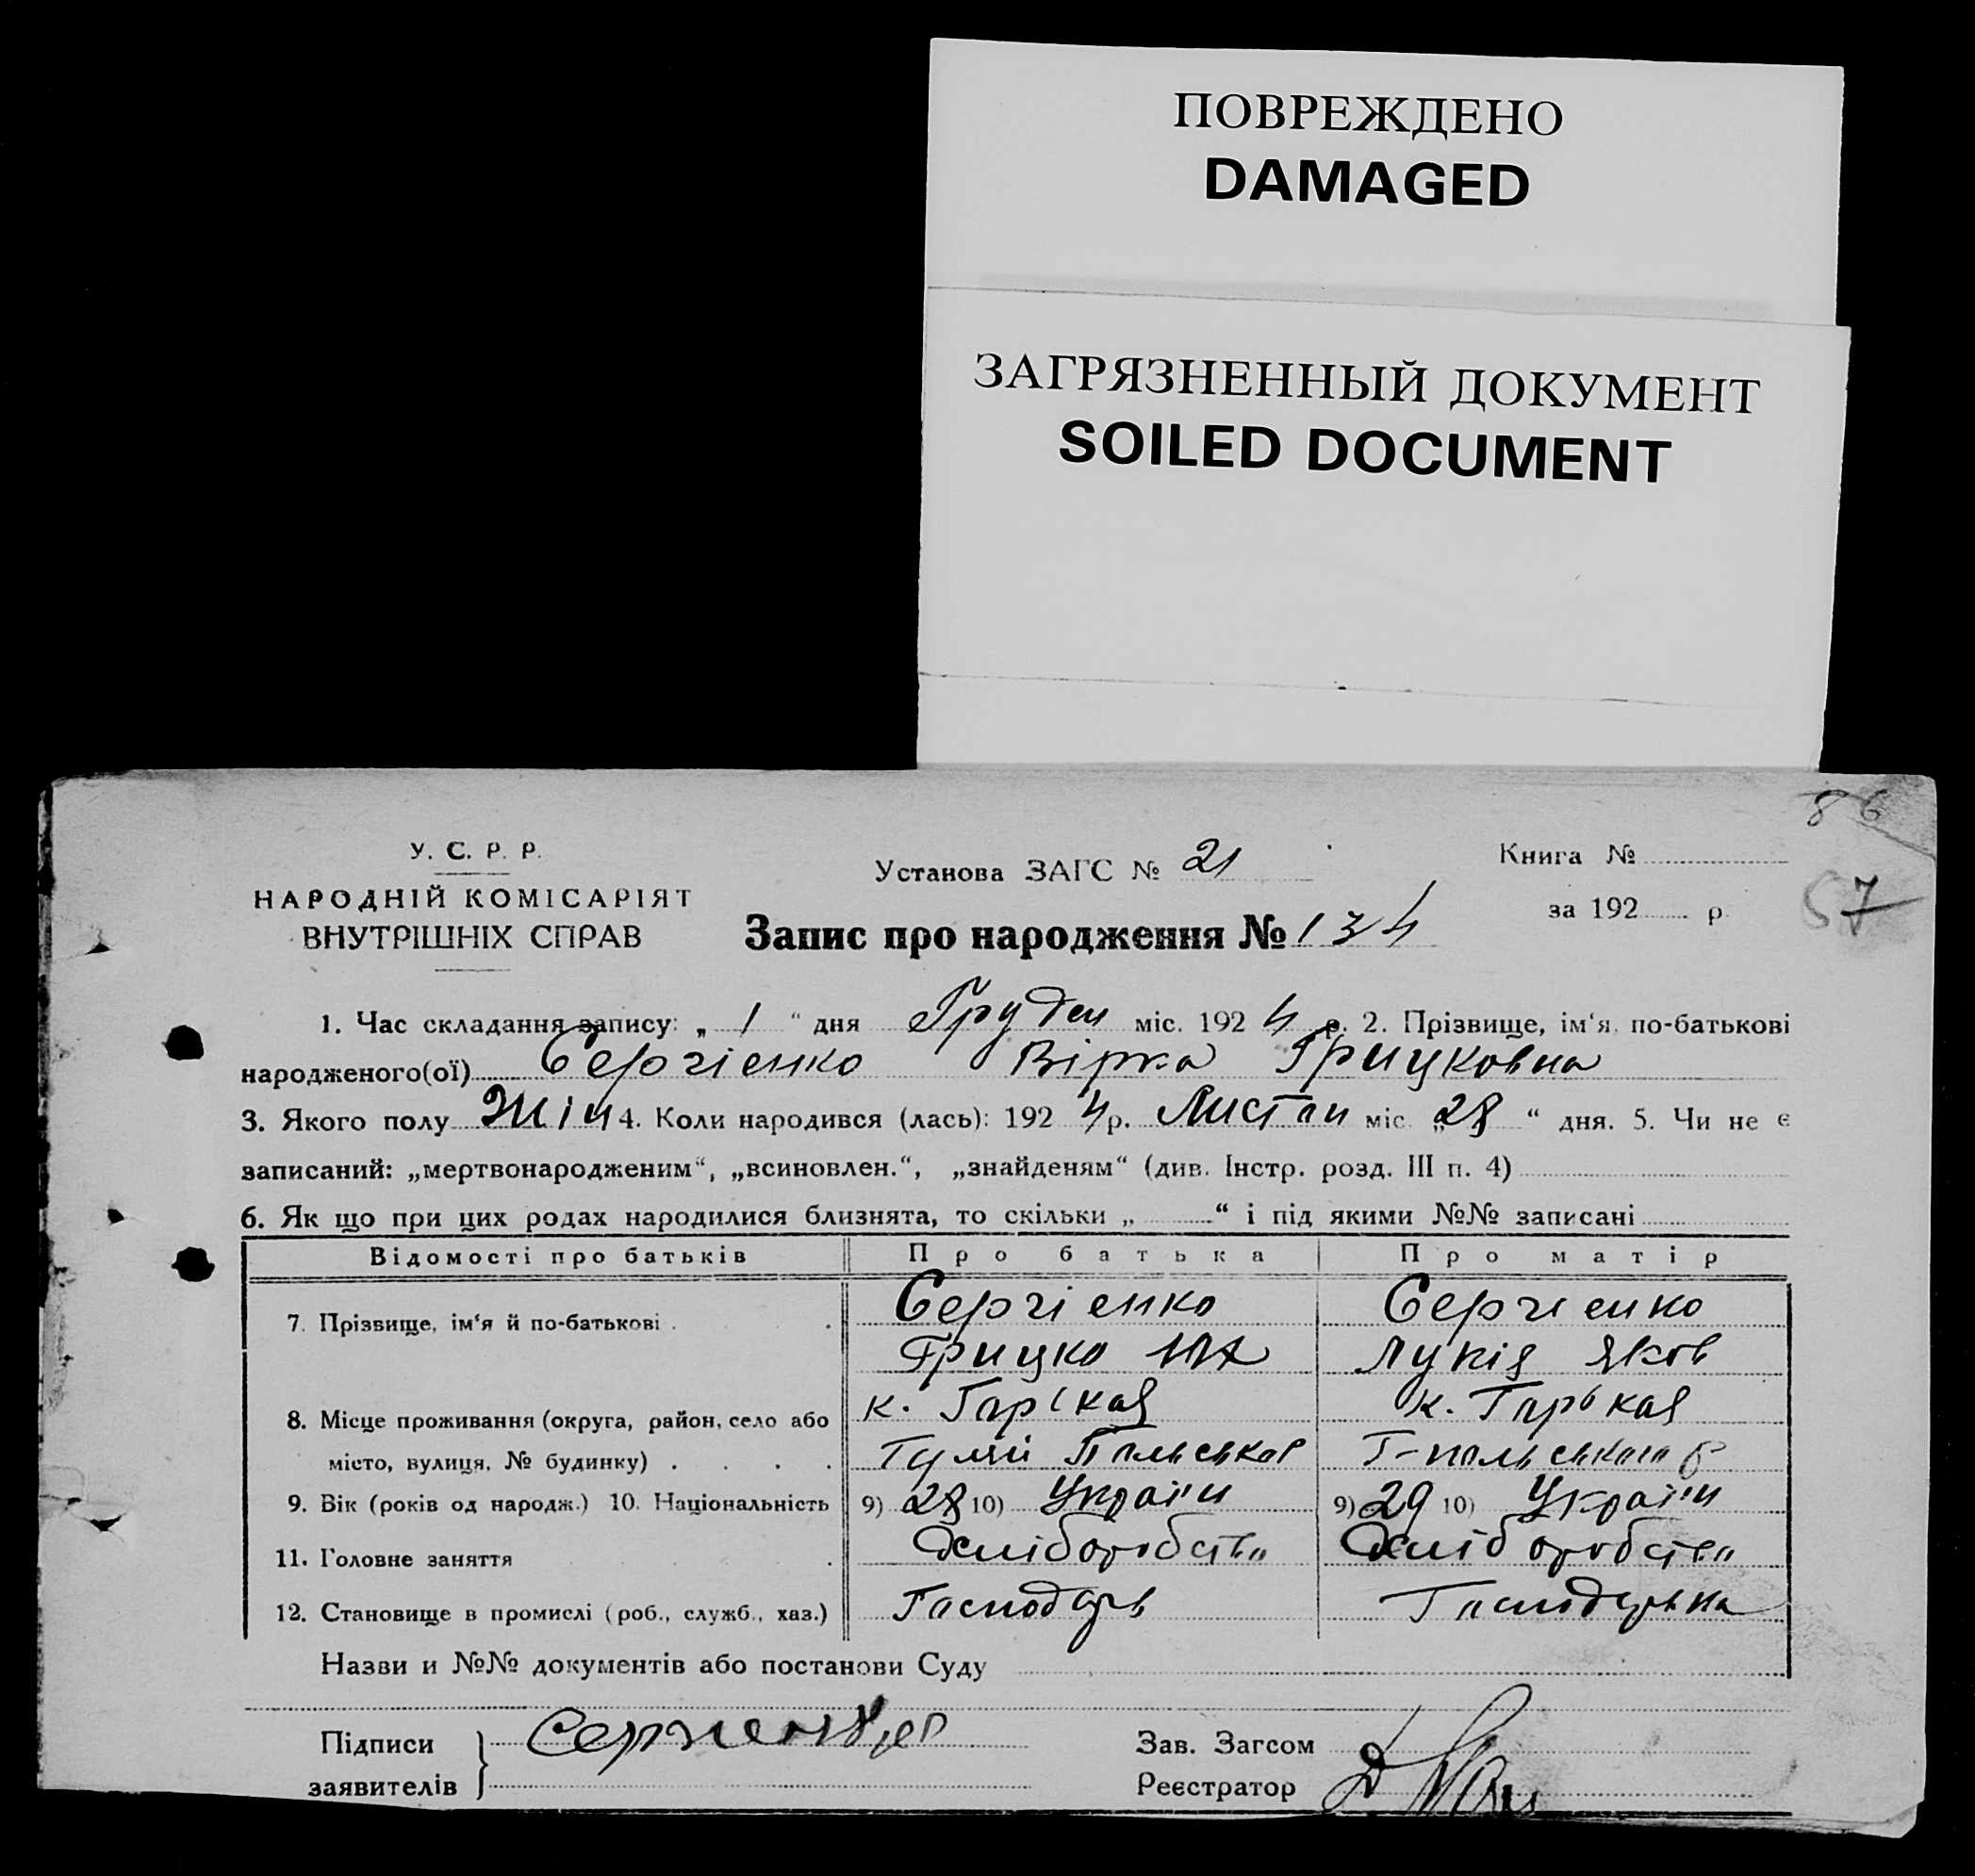 ПОВРЕЖДЕНО
DAMAGED
ЗАГРЯЗНЕННЫЙ ДОКУМЕНТ
SOILED DOCUMENT
86
57
У. С. Р. Р.
НАРОДНІЙ КОМІСАРІЯТ
ВНУТРІШНІХ СПРАВ
Установа ЗАГС № 21
Книга №
за 192 р.
Запис про народження № 134
1. Час складання запису: „ 1 “ дня Груден міс. 192 4 р. 2. Прізвище, ім‘я, по-батькові
народженого(ої) Сергієнко Вірка Грицковна
3. Якого полу Жін 4. Коли народився (лась): 192 4 р. Листоп міс. „28 “ дня. 5. Чи не є
записаний: „мертвонародженим“, „всиновлен.“, „знайденям“ (див. Інстр. розд. III п. 4)
6. Як що при цих родах народилися близнята, то скільки „ “ і під якими №№ записані
Відомості про батьків Про батька Про матір
7. Прізвище, ім‘я й по-батькові . . Сергієнко Сергієнко
Грицко Лукія Яков
8. Місце проживання (округа, район, село або к. Гарькая к. Гарькая
місто, вулиця, № будинку) . . . . Гуляй Польсько Г-польського р
9. Вік (років од народж.) 10. Національність 9) 28 10) Україн 9) 29 10) Україн
11. Головне заняття . Хліборобств Хліборобств
12. Становище в промислі (роб., служб., хаз.) Господарь Господарька
Назви и №№ документів або постанови Суду
Підписи
заявителів
Зав. Загсом
Реєстратор